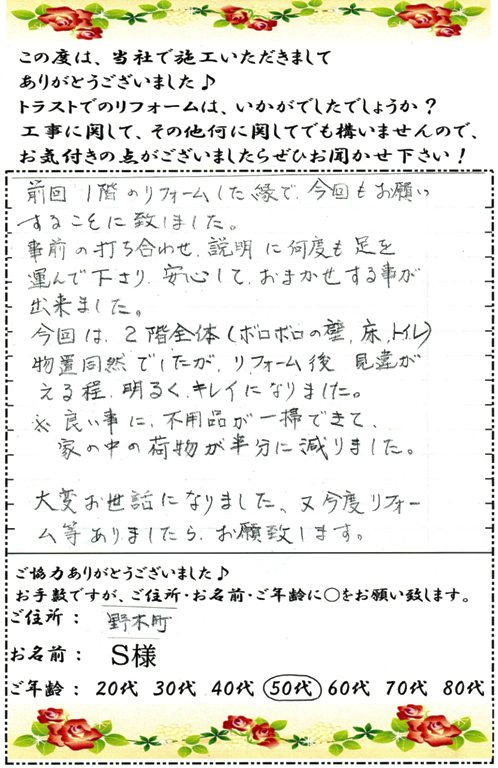 この度は、当社で施工いただきまして
ありがとうございました♪
トラストでのリフォームは、いかがでしたでしょうか？
工事に関して、その他何に関してでも構いませんので、
お気付きの点がございましたらぜひお聞かせ下さい！
前回1階のリフォームした縁で、今回もお願い
することに致しました。
事前の打ち合わせ、説明に何度も足を
運んで下さり、安心して、おまかせする事が
出来ました。
今回は、2階全体(ボロボロの壁、床、トイレ)
物置同然でしたが、リフォーム後 見違が
える程、明るく、キレイになりました。
※良い事に、不用品が一掃できて、
家の中の荷物が半分に減りました。
大変お世話になりました、又今度リフォー
ム等ありましたら、お願致します。
ご協力ありがとうございました♪
お手数ですが、ご住所・お名前・ご年齢に○をお願い致します。
ご住所： 野木町
お名前： S様
ご年齢： 20代 30代 40代 50代 60代 70代 80代